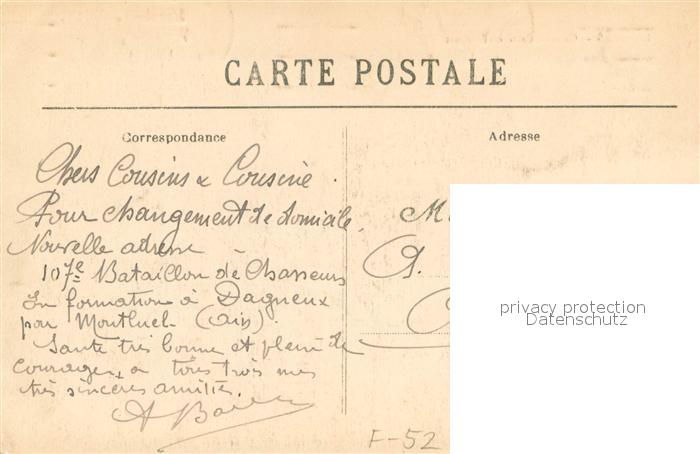 CARTE POSTALE
Correspondance
Adresse
Chers Cousins & Cousine.
Pour changement de domicile,
Nouvelle adresse -
107e Bataillon de Chasseurs
En formation à Dagneux
par Montluel (Ain).
Santé très bonne et pleine de
courages, a tous trois mes
très sincères amitiés.
A
M
A.
privacy protection
Datenschutz
F-52